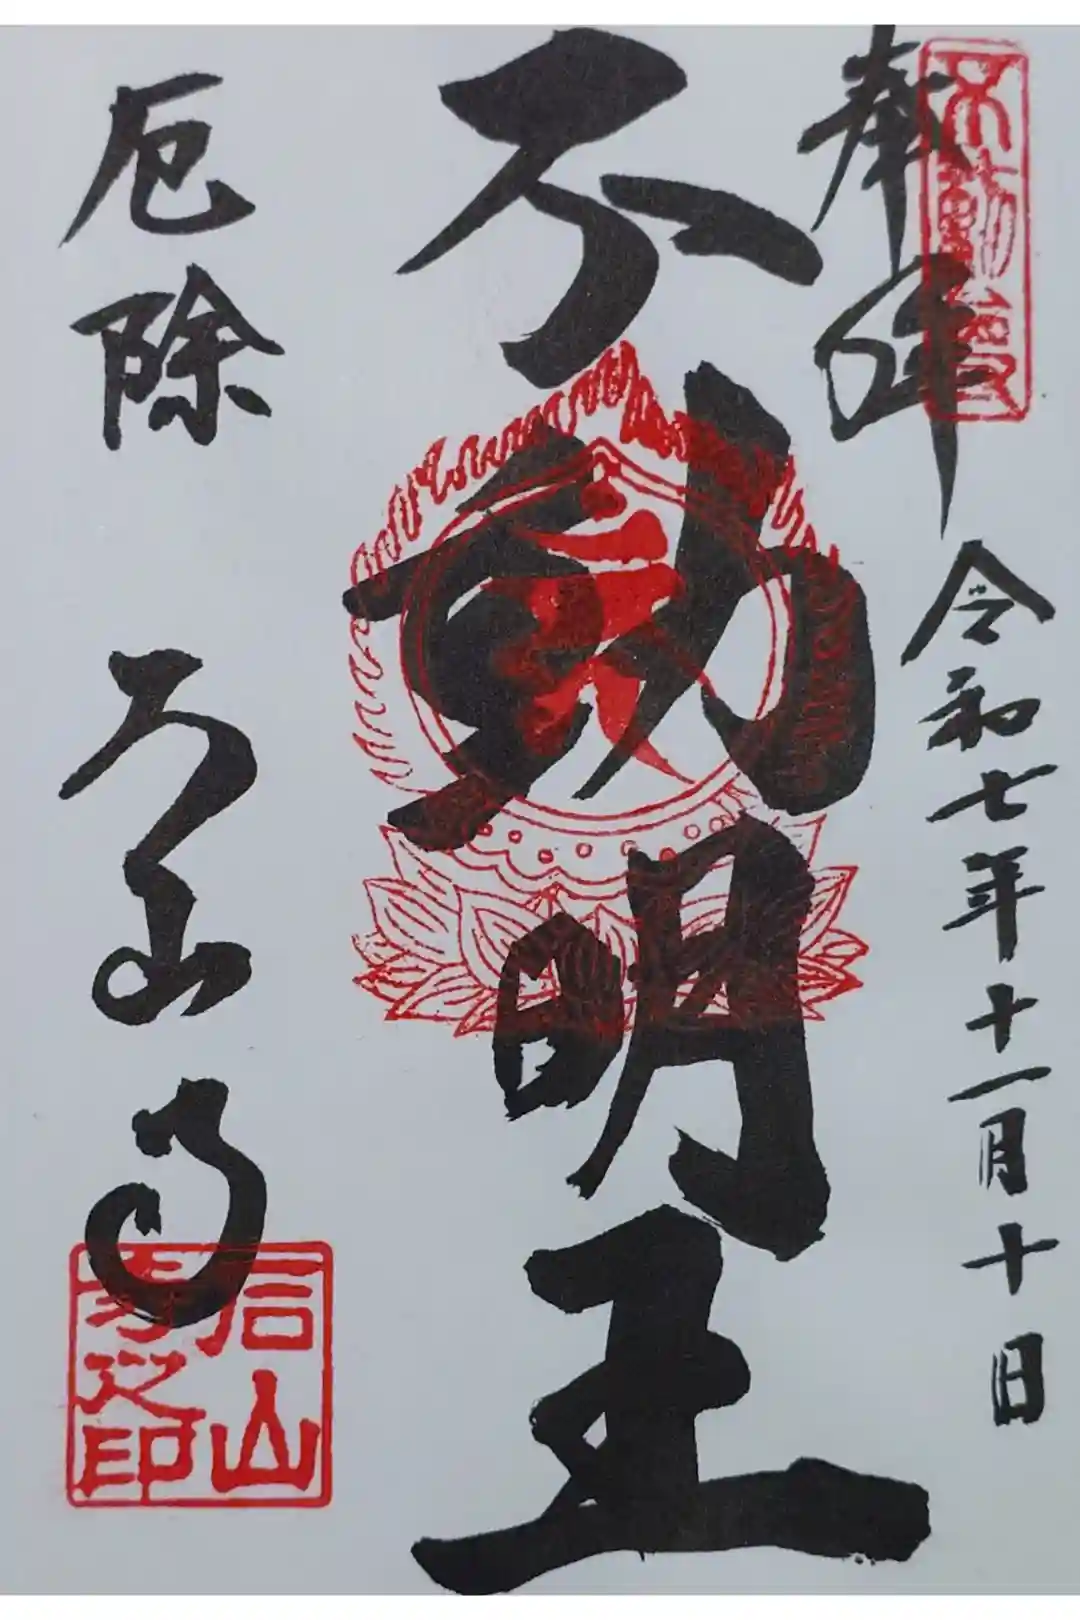 奉拝
令和七年十一月十日
不動明王
厄除
石山寺
石山寺之印